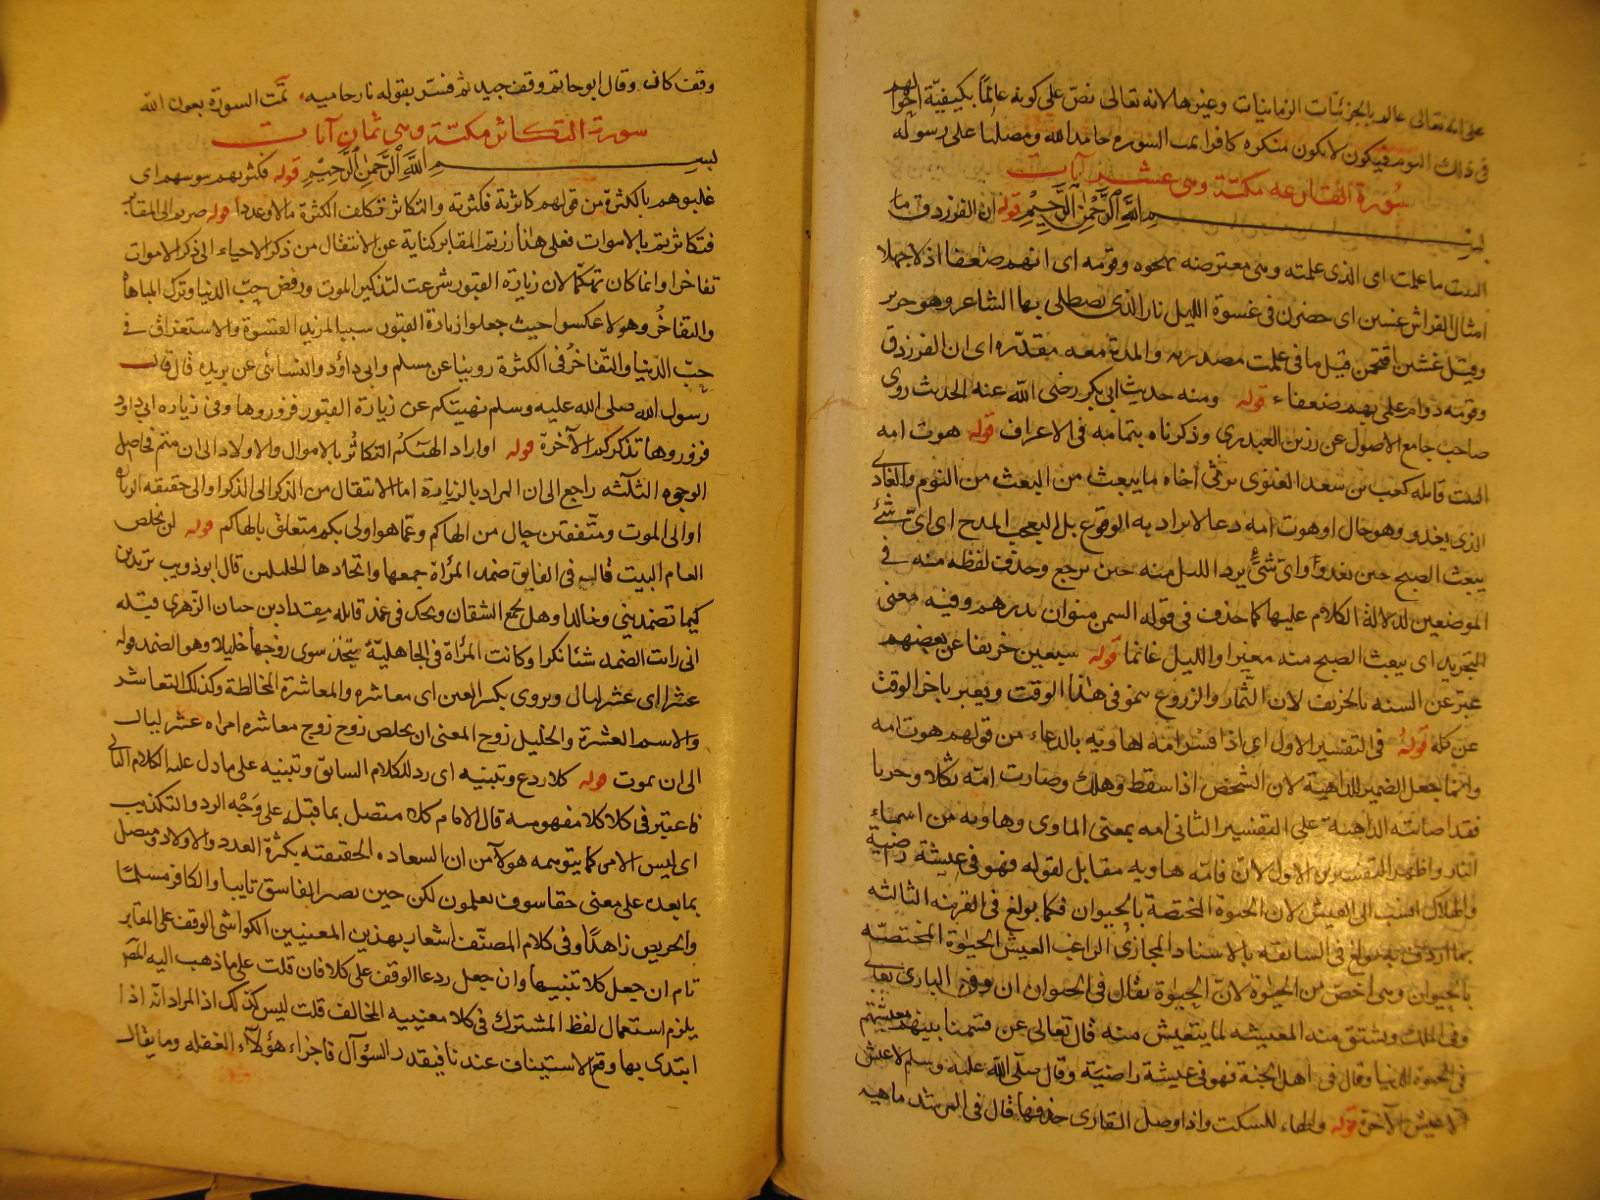 على انه تعالى عالم بالجزئيات الزمانيات وغيرها لانه تعالى نص على كونه عالماً بكيفيّة احوالهم
فى ذلك اليوم فيكون لا يكون منكره كافرا تمت السوره حامدا لله ومصليا على رسوله
سُورة القارعه مكيّة وهى عشر آيات
بسم اللَّهِ الرَّحْمٰنِ الرَّحِيْمِ قوله ان الفرزدق ما
البيت ما علمت اى الذى علمته وهى معترضه نحوه وقومه اى انهم ضعفا اذلا جهلا
امثال الفراش غشين اى حضرن فى غسوة الليل نار الذى يصطلى بها الشاعر وهو جرير
وقيل غشين اقتحمن قيل ما فى علمت مصدريه والمدة معه مقدّره اى ان الفرزدق
وقومه دوام على بهم ضعفاء قوله ومنه حديث ابى بكر رضى الله عنه الحديث روى
صاحب جامع الاصول عن رزين العبدرى وذكرناه بتمامه فى الاعراف قوله هوت امه
البيت قايله كعب بن سعد الغنوى يرثى اخاه ما يبعث من البعث من النوم والغادى
الذى يغدو وهو حال او هوت امه دعا لا يراد به الوقوع بل التعجب المدح اى اىّ شئ
يبعث الصبح حين يغدو او اىّ شئ يرد الليل منه حين يرجع وحذف لفظه منه فى
الموضعين لدلالة الكلام عليها كما حذف فى قوله السمن منوان بدرهم وفيه معنى
التجريد اى يبعث الصبح منه مغيرا والليل غانما قوله سبعين خريفا عن بعضهم
عبّر عن السنه بالخريف لان الثمار والزروع ينمو فى هذا الوقت ويعبر باخر الوقت
عن كله قوله فى التفسير الاول اى اذا فسّر امه هاويه بالدعاء من قولهم هوت امه
وانما جعل الضمير للداهية لان الشخص اذا سقط وهلك وصارت امّه ثكلا وحربا
فقد اصابته الداهية على التفسير الثانى امه بمعنى الماوى وهاويه من اسماء
النار واظهر التفسيرين الاول لانّ فامّه هاويه مقابل لقوله فهو فى عيشة راضية
والهلاك انسب الى العيش لان الحيوة المختصة بالحيوان فكما بولغ فى القرينه الثالثه
بما اردف به بولغ فى السابقه بالاسناد المجازى الراغب العيش الحيوة المختصّه
بالحيوان وهى اخصّ من الحيوة لانّ الحيوة يقال فى الحيوان وفى البارى تعالى
وفى الملك ويشتق منه المعيشه لما يتعيش منه قال تعالى عن قسمنا بينهم معيشتهم
فى الحيوة الدنيا وقال فى اهل الجنة فهو فى عيشة راضيّة وقال صلى الله عليه وسلم لا عيش
الا عيش الآخرة قوله والهاء للسكت واذا وصل القارى حذفها قال فى المرشد ماهيه
وقف كاف وقال ابو حاتم وقف جيد ثم فسّر بقوله نار حاميه، تمّت السورة بعون الله
سورة التكاثر مكيّة وهى ثمان آيات
بسم اللَّهِ الرَّحْمٰنِ الرَّحِيْمِ قوله فكثروهم بنو سهم اى
غلبوهم بالكثرة من قولهم كاثرته فكثرته والتكاثر تكلف الكثرة مالا وعددا قوله صرتم الى المقابر
فتكاثرتم بالاموات فعلى هذا زرتم المقابر كناية عن الانتقال من ذكر الاحياء الى ذكر الاموات
تفاخرا وانما كان تهكّما لان زيارة القبور شرعت لتذكير الموت ورفض حبّ الدنيا وترك المباهاة
والتفاخُر وهولا عكسوا حيث جعلوا زيارة القبور سببا لمزيد القسوة والاستغراق فى
حبّ الدّنيا والتّفاخُر فى الكثرة روينا عن مسلم وابى داؤد والنسائى عن بريده قال قال
رسول الله صلى الله عليه وسلم نهيتكم عن زيارة القبور فزوروها وفى زياره ابى داود
فزوروها تذكركم الآخرة قوله او اراد الهٰيكُم التكاثُر بالاموال والاولاد الى ان متم فحاصل
الوجوه الثلثه راجع الى ان المراد بالزيارة اما الانتقال من الذكر الى الذكر او الى حقيقه الزياره
او الى الموت ومتّفقين حال من الهاكم وعمّا هو اولى بكم متعلق بالهاكم قوله لن يخلص
العام البيت قال فى الفايق ضمد المرأة جمعها واتحادها الخليلين قال ابو ذويب تريدين
كيما تضمدينى وخالدا وهل يجمع السّيفان ويحك فى غمد قايله مقداد بن حيان الزهرى قبله
انى رايت الضمد شئا نكرا وكانت المرأة فى الجاهليّة تتّخذ سوى زوجها خليلا وهو الضمد قوله
عشرا اى عشر ليال ويروى بكسر العين اى معاشره والمعاشرة المخالطة وكذلك التعاشر
والاسم العشرة والحليل زوج المعنى ان يخلص زوج زوج معاشره امراه عشر ليال
الى ان يموت قوله كلا ردع وتنبيه اى رد للكلام السابق وتنبيه على ما دل عليه الكلام التالى
فاعتبر فى كلا كلا مفهوميه قال الامام كلا متصل بما قبل على وَجْه الرد والتكذيب
اى ليس الامر كما يتوهمه هولآ من ان السعاده الحقيقيه بكثرة العدد والاولاد ومتصل
بما بعده على معنى حقا سوف يعلمون لكن حين يصر الفاسق تايبا والكافر مسلمًا
والحريص زاهدًا وفى كلام المصنّف اشعار بهذين المعنيين الكواشى الوقف على المقابر
تام ان جعل كلا تنبيها وان جعل ردعا الوقف على كلا فان قلت على ما ذهب اليه المص
يلزم استعمال لفظ المشترك فى كلا معنييه المخالف قلت ليس كذلك اذ المراد انّه اذا
ابتدى بها وقع الاستيناف عندنا فيقدر السؤآل فاجزاء هؤلآء الغفله وما يقال